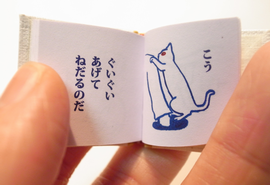 こう
ぐいぐい
あげて
ねだるのだ